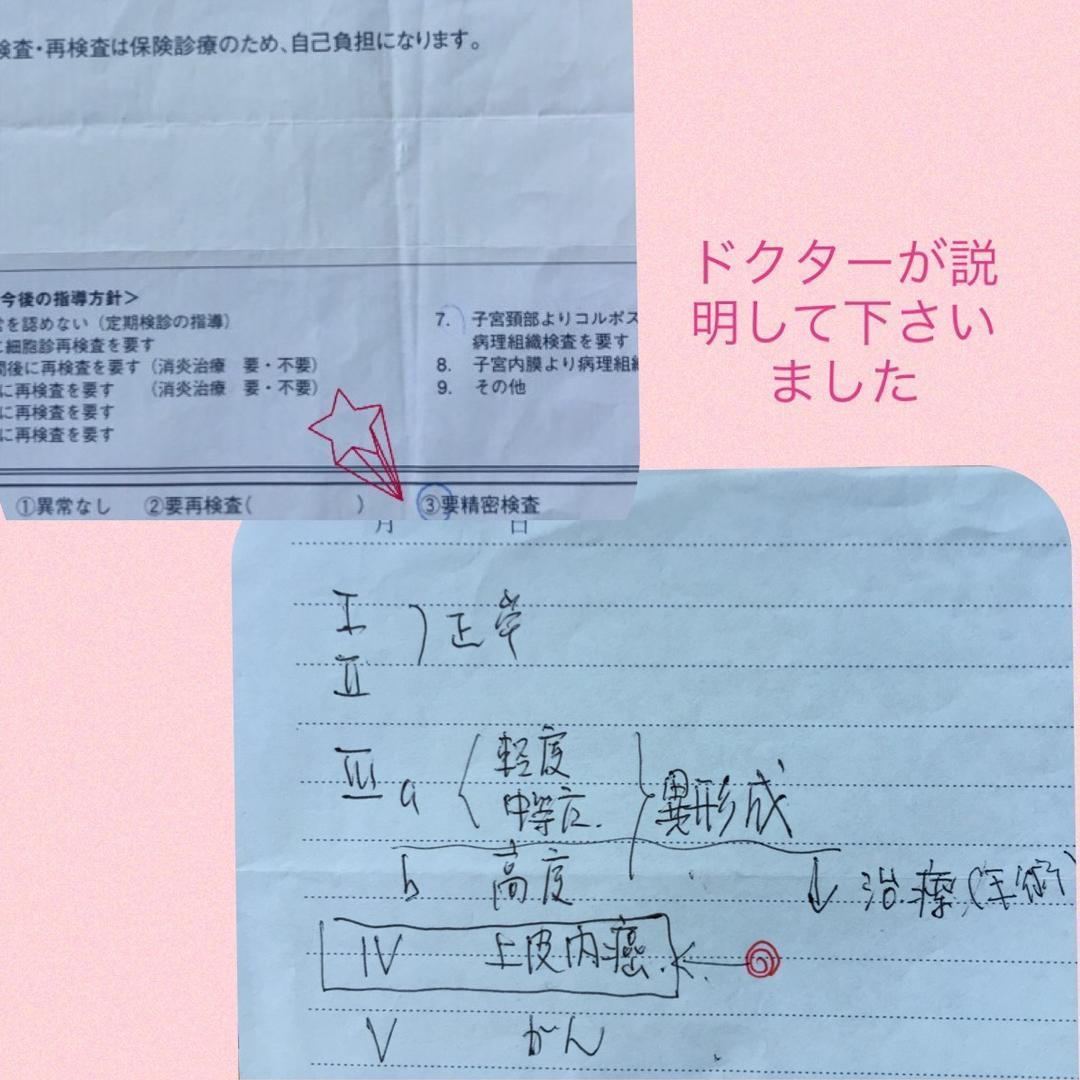 検査・再検査は保険診療のため、自己負担になります。
今後の指導方針＞
を認めない（定期検診の指導）
細胞診再検査を要す
間後に再検査を要す（消炎治療　要・不要）
に再検査を要す　（消炎治療　要・不要）
に再検査を要す
に再検査を要す
7.　子宮頸部よりコルポス
病理組織検査を要す
8.　子宮内膜より病理組織
9.　その他
①異常なし　②要再検査(　　　)　③要精密検査
ドクターが説
明して下さい
ました
月　日
I
正常
II
III a　軽度
中等度
異形成
b　高度
↓ 治療(手術)
IV　上皮内癌
V　がん